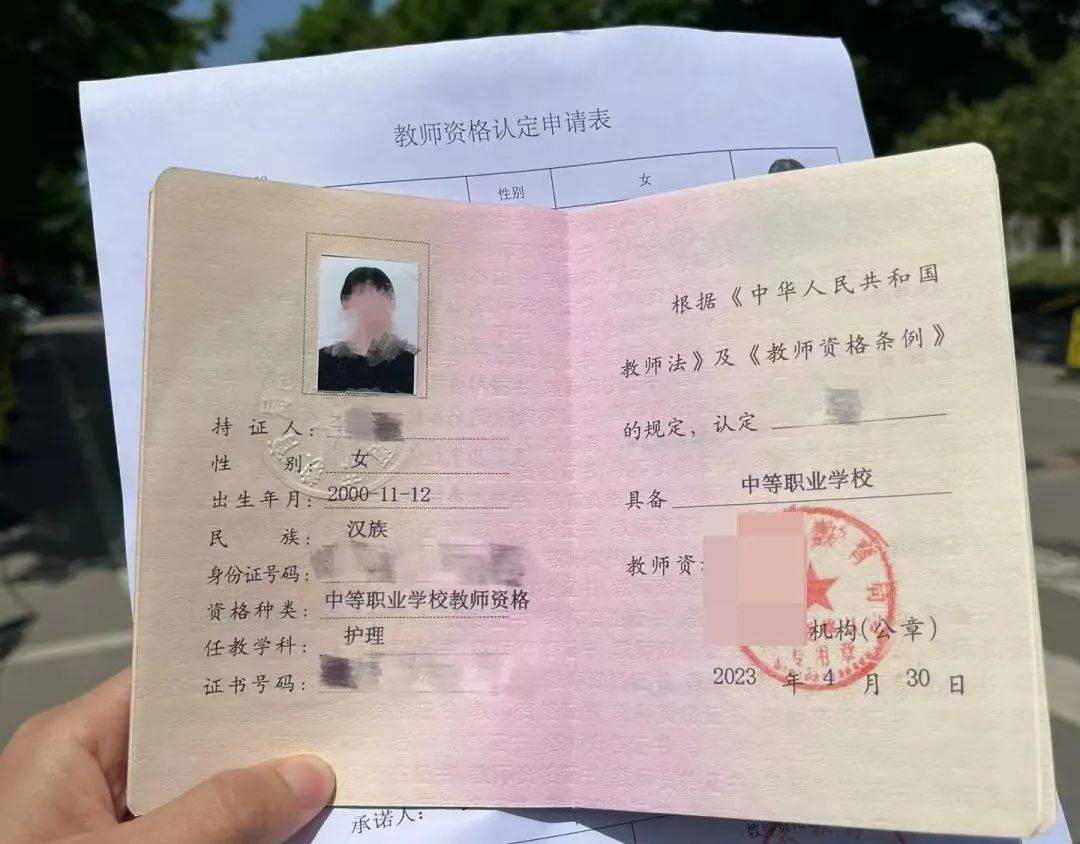 教师资格认定申请表
性别
女
持证人：
性别：女
出生年月：2000-11-12
民族：汉族
身份证号码：
资格种类：中等职业学校教师资格
任教学科：护理
证书号码：
根据《中华人民共和国
教师法》及《教师资格条例》
的规定，认定
具备 中等职业学校
教师资
机构(公章)
2023 年 4 月 30 日
教育局
专用章
承诺人：